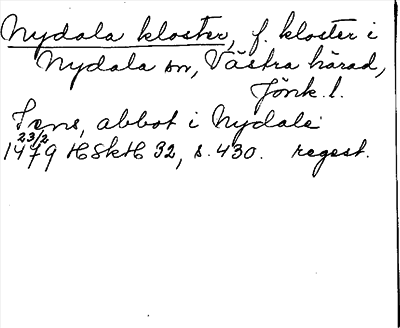 Nydala kloster, f. kloster i
Nydala sn, Västra härad,
Jönk. l.
Jens, abbot i Nydala
23/2
1479 HSkH 32, s. 430. regest.